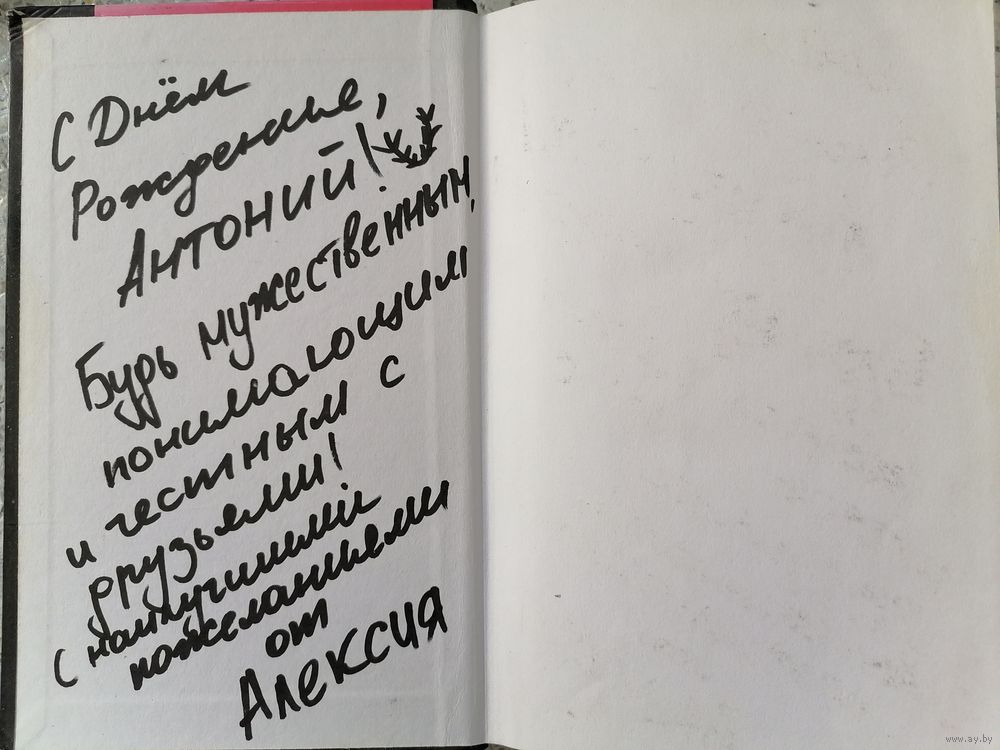 С Днём
Рожденье,
Антоний!
Будь мужественным,
понимающим
и честным с
друзьями!
С наилучшими
пожеланьями
от
Алексия
www.ay.by